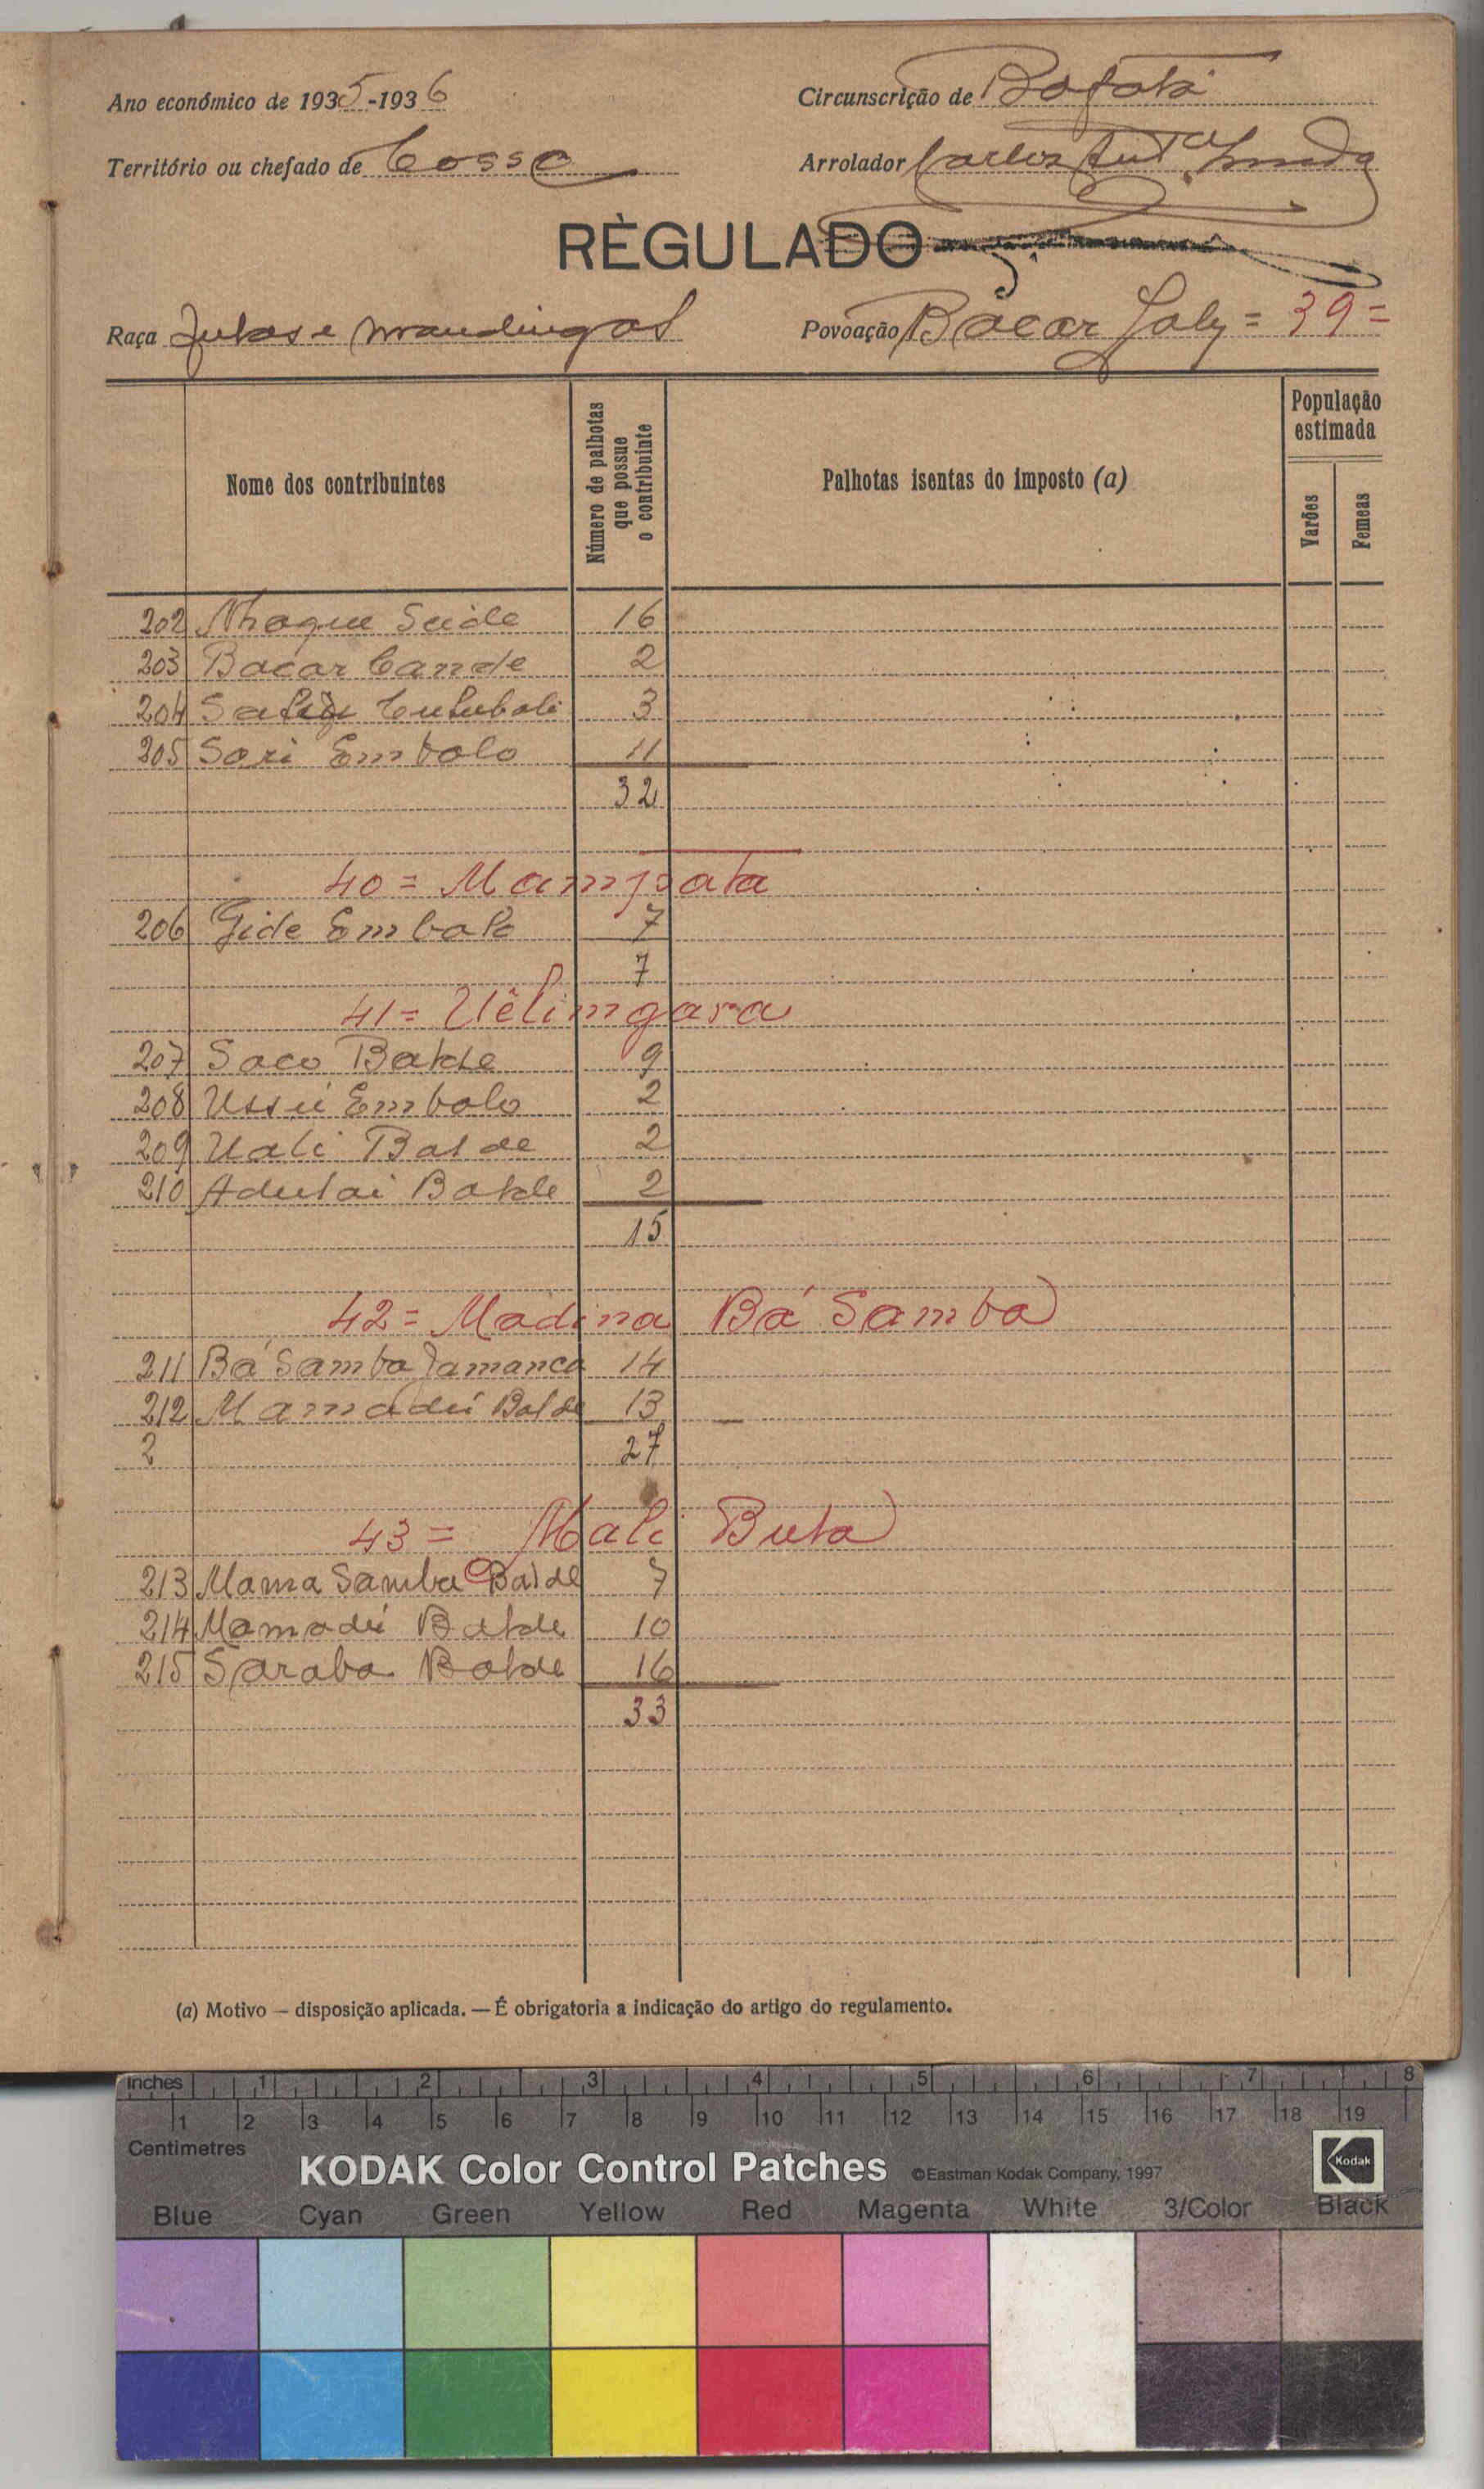 Ano económico de 1935-1936
Circunscrição de Bafatá
Território ou chefado de Cossé
Arrolador Carlos
RÈGULADO
Raça Fulas e mandingas
Povoação Bacar Jaly = 39 =
Nome dos contribuintes
Número de palhotas que possue o contribuinte
Palhotas isentas do imposto (a)
População estimada
Varões
Femeas
202 Nhaque Seide 16
203 Bacar Cande 2
204 Cutubali 3
205 Sori Embalo 11
32
40 = Mampata
206 Gide Embalo 7
7
41 = Uêlimgara
207 Saco Balde 9
208 Ussú Embalo 2
209 Uali Balde 2
210 Adulai Balde 2
15
42 = Madina Bá Samba
211 Bá Samba Jamanca 14
212 Mamadú Balde 13
2 27
43 = Mali Buta
213 Mama Samba Balde 7
214 Mamadú Balde 10
215 Saraba Balde 16
33
(a) Motivo — disposição aplicada. — É obrigatoria a indicação do artigo do regulamento.
Inches 1 2 3 4 5 6 7 8
1 2 3 4 5 6 7 8 9 10 11 12 13 14 15 16 17 18 19
Centimetres
KODAK Color Control Patches ©Eastman Kodak Company, 1997 Kodak
Blue Cyan Green Yellow Red Magenta White 3/Color Black